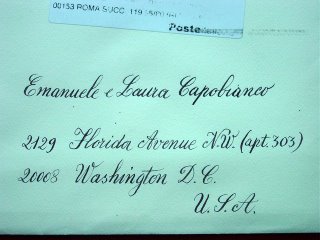 00153 ROMA SUCC. 119
Poste
Emanuele e Laura Capobianco
2129 Florida Avenue N.W. (apt. 303)
20008 Washington D.C.
U.S.A.